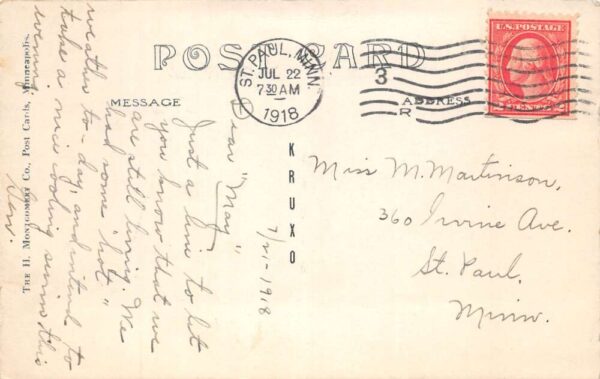 POST CARD
ST. PAUL, MINN.
JUL 22
7 30 AM
1918
3
R
U.S. POSTAGE
MESSAGE
ADDRESS
KRUXO
THE H. MONTGOMERY CO., Post Cards, Minneapolis.
7/21-1918
Dear "May"
Just a line to let
you know that we
are still living. We
had some "hot"
weather to-day, and intend to
take a nice cooling swim this
evening.
Miss M. Martinson,
360 Irvine Ave.
St. Paul,
Minn.